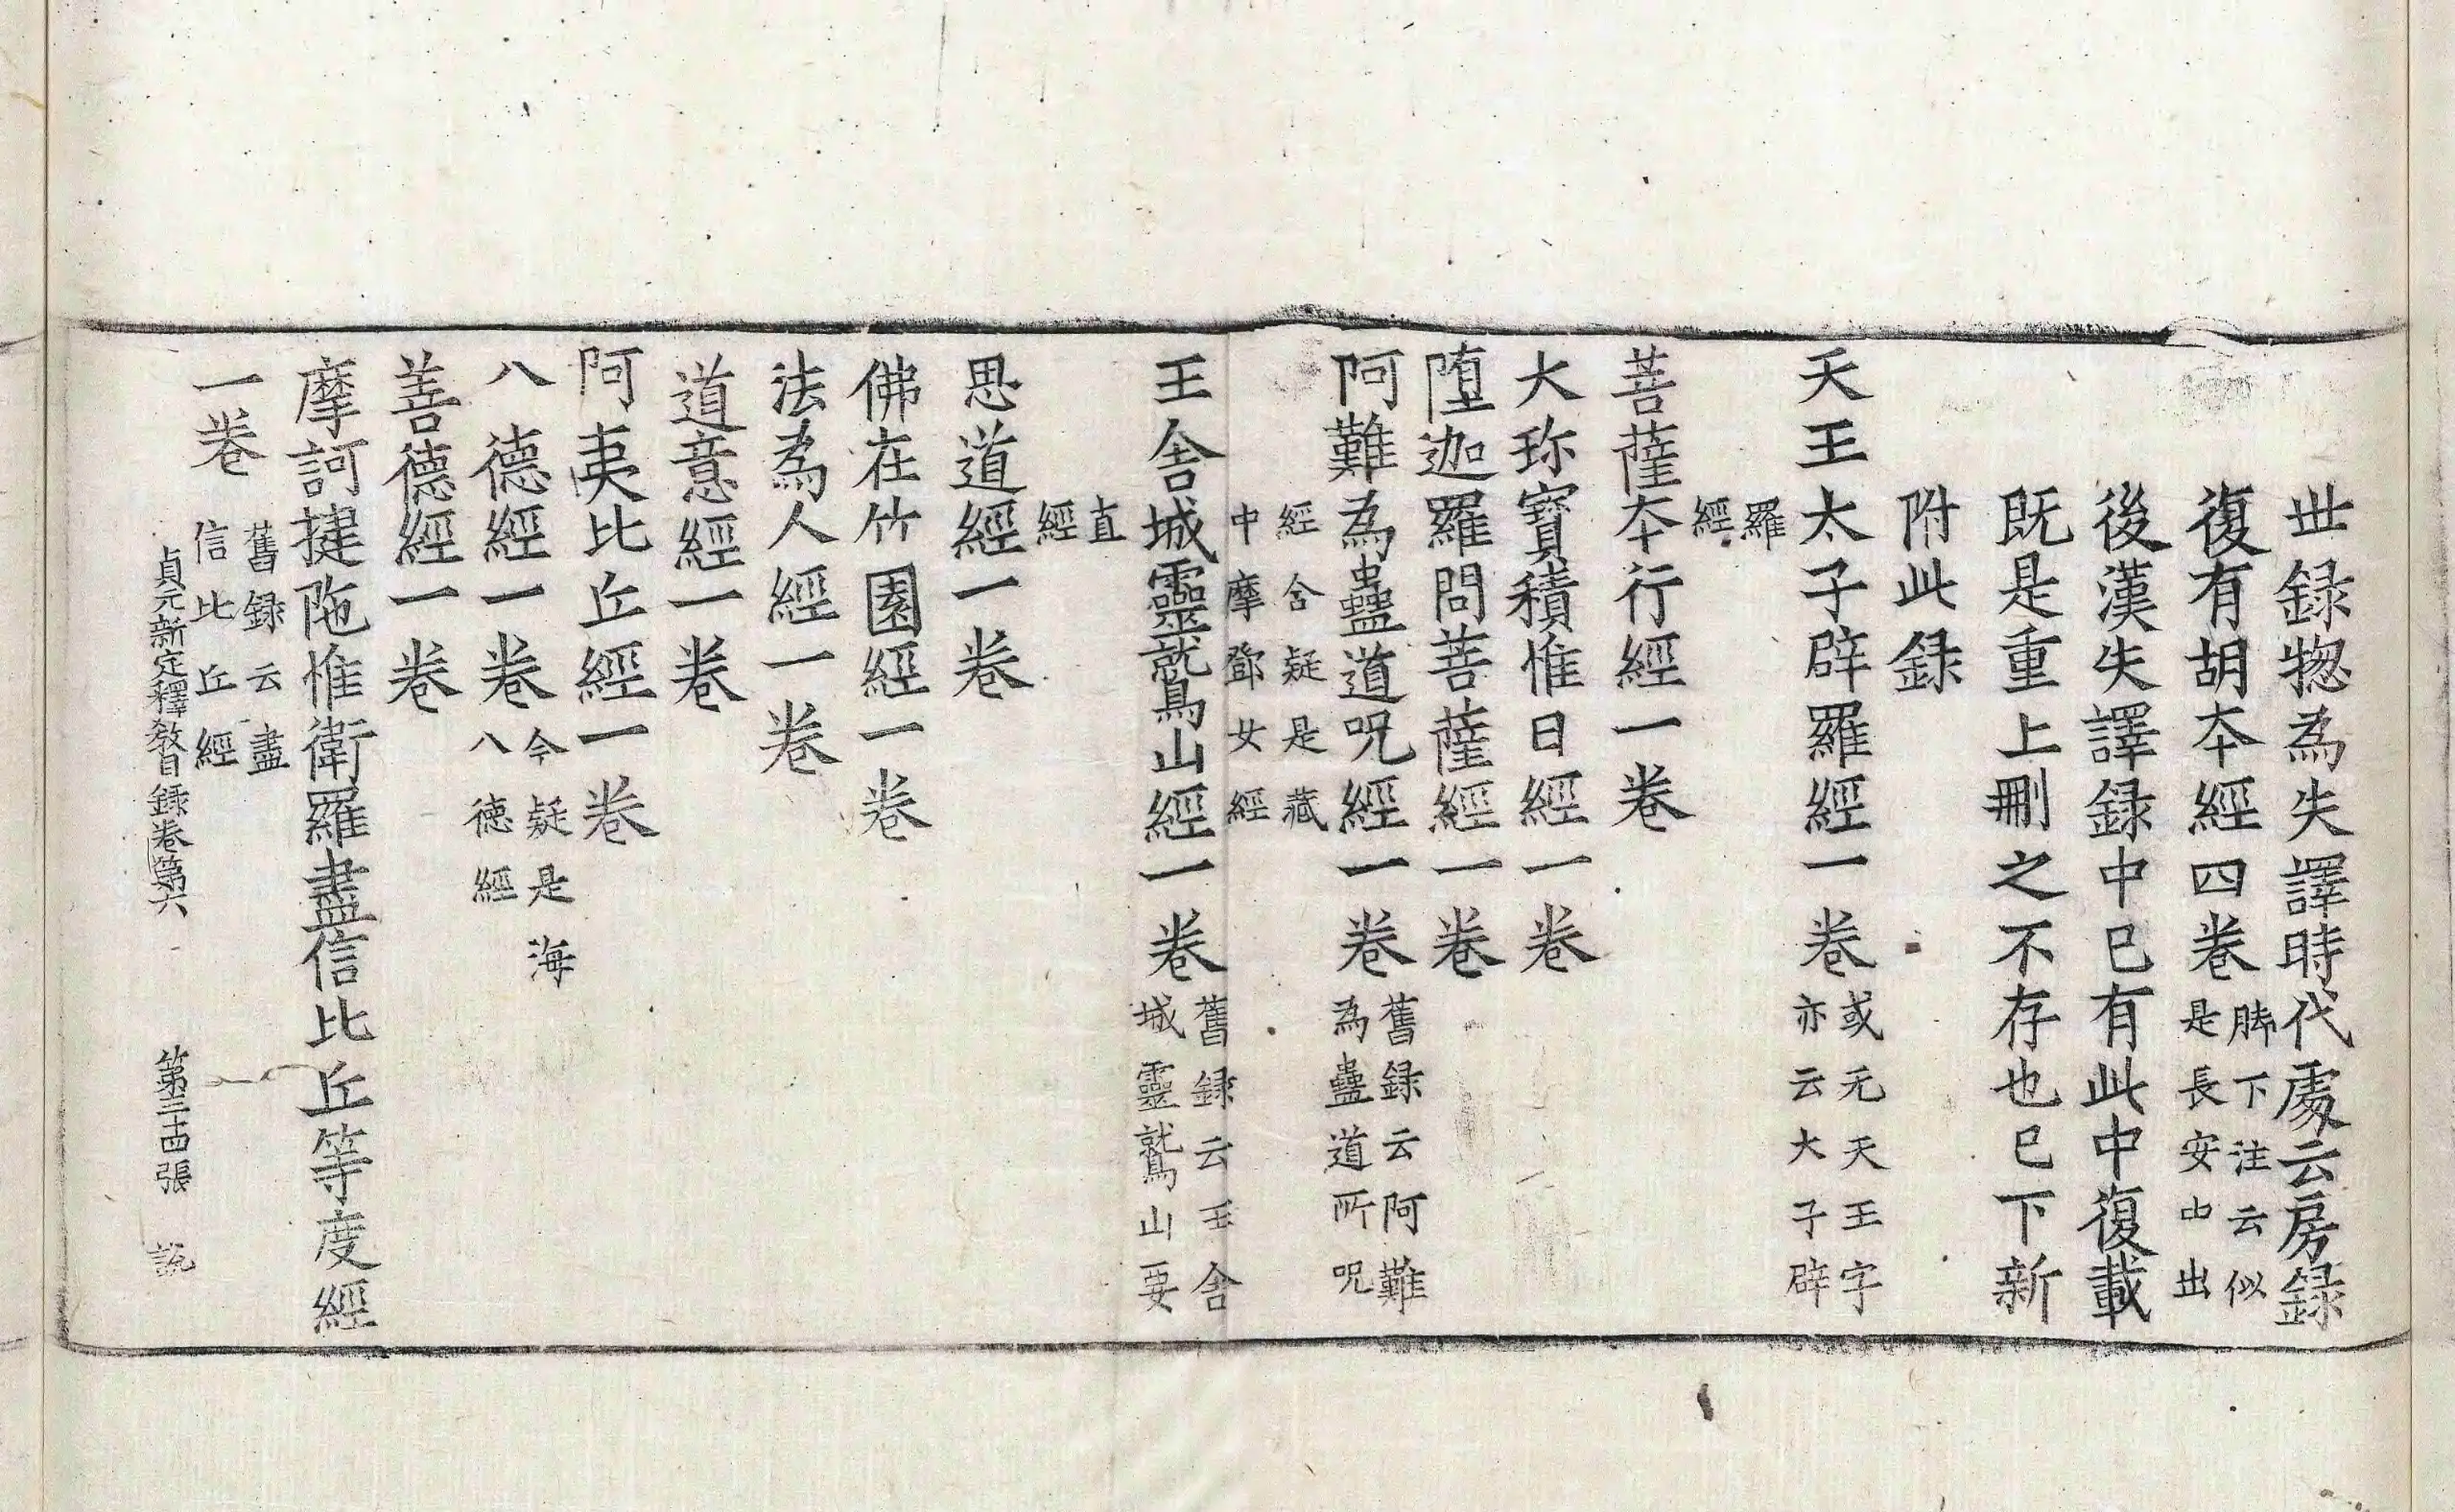 世録揔為失譯時代處云房録
復有胡夲經四卷脚下注云似是長安中出
後漢失譯録中已有此中復載
既是重上刪之不存也已下新
附此録
天王太子辟羅經一卷或无天王字亦云大子辟
羅經
菩薩夲行經一卷
大珎寳積惟日經一卷
墮迦羅問菩薩經一卷
阿難為蠱道呪經一卷舊録云阿難為蠱道所呪
經含疑是藏中摩鄧女經
王舍城靈鷲山經一卷舊録云王舍城靈鷲山要
直經
思道經一卷
佛在竹園經一卷
法為人經一卷
道意經一卷
阿夷比丘經一卷
八德經一卷今疑是海八德經
善德經一卷
摩訶揵陁惟衛羅盡信比丘等度經
一卷舊録云盡信比丘經
貞元新定釋教目録卷第六 第三十四張 説